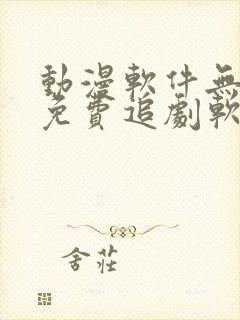 動漫軟件無
免費追劇軟
舍莊